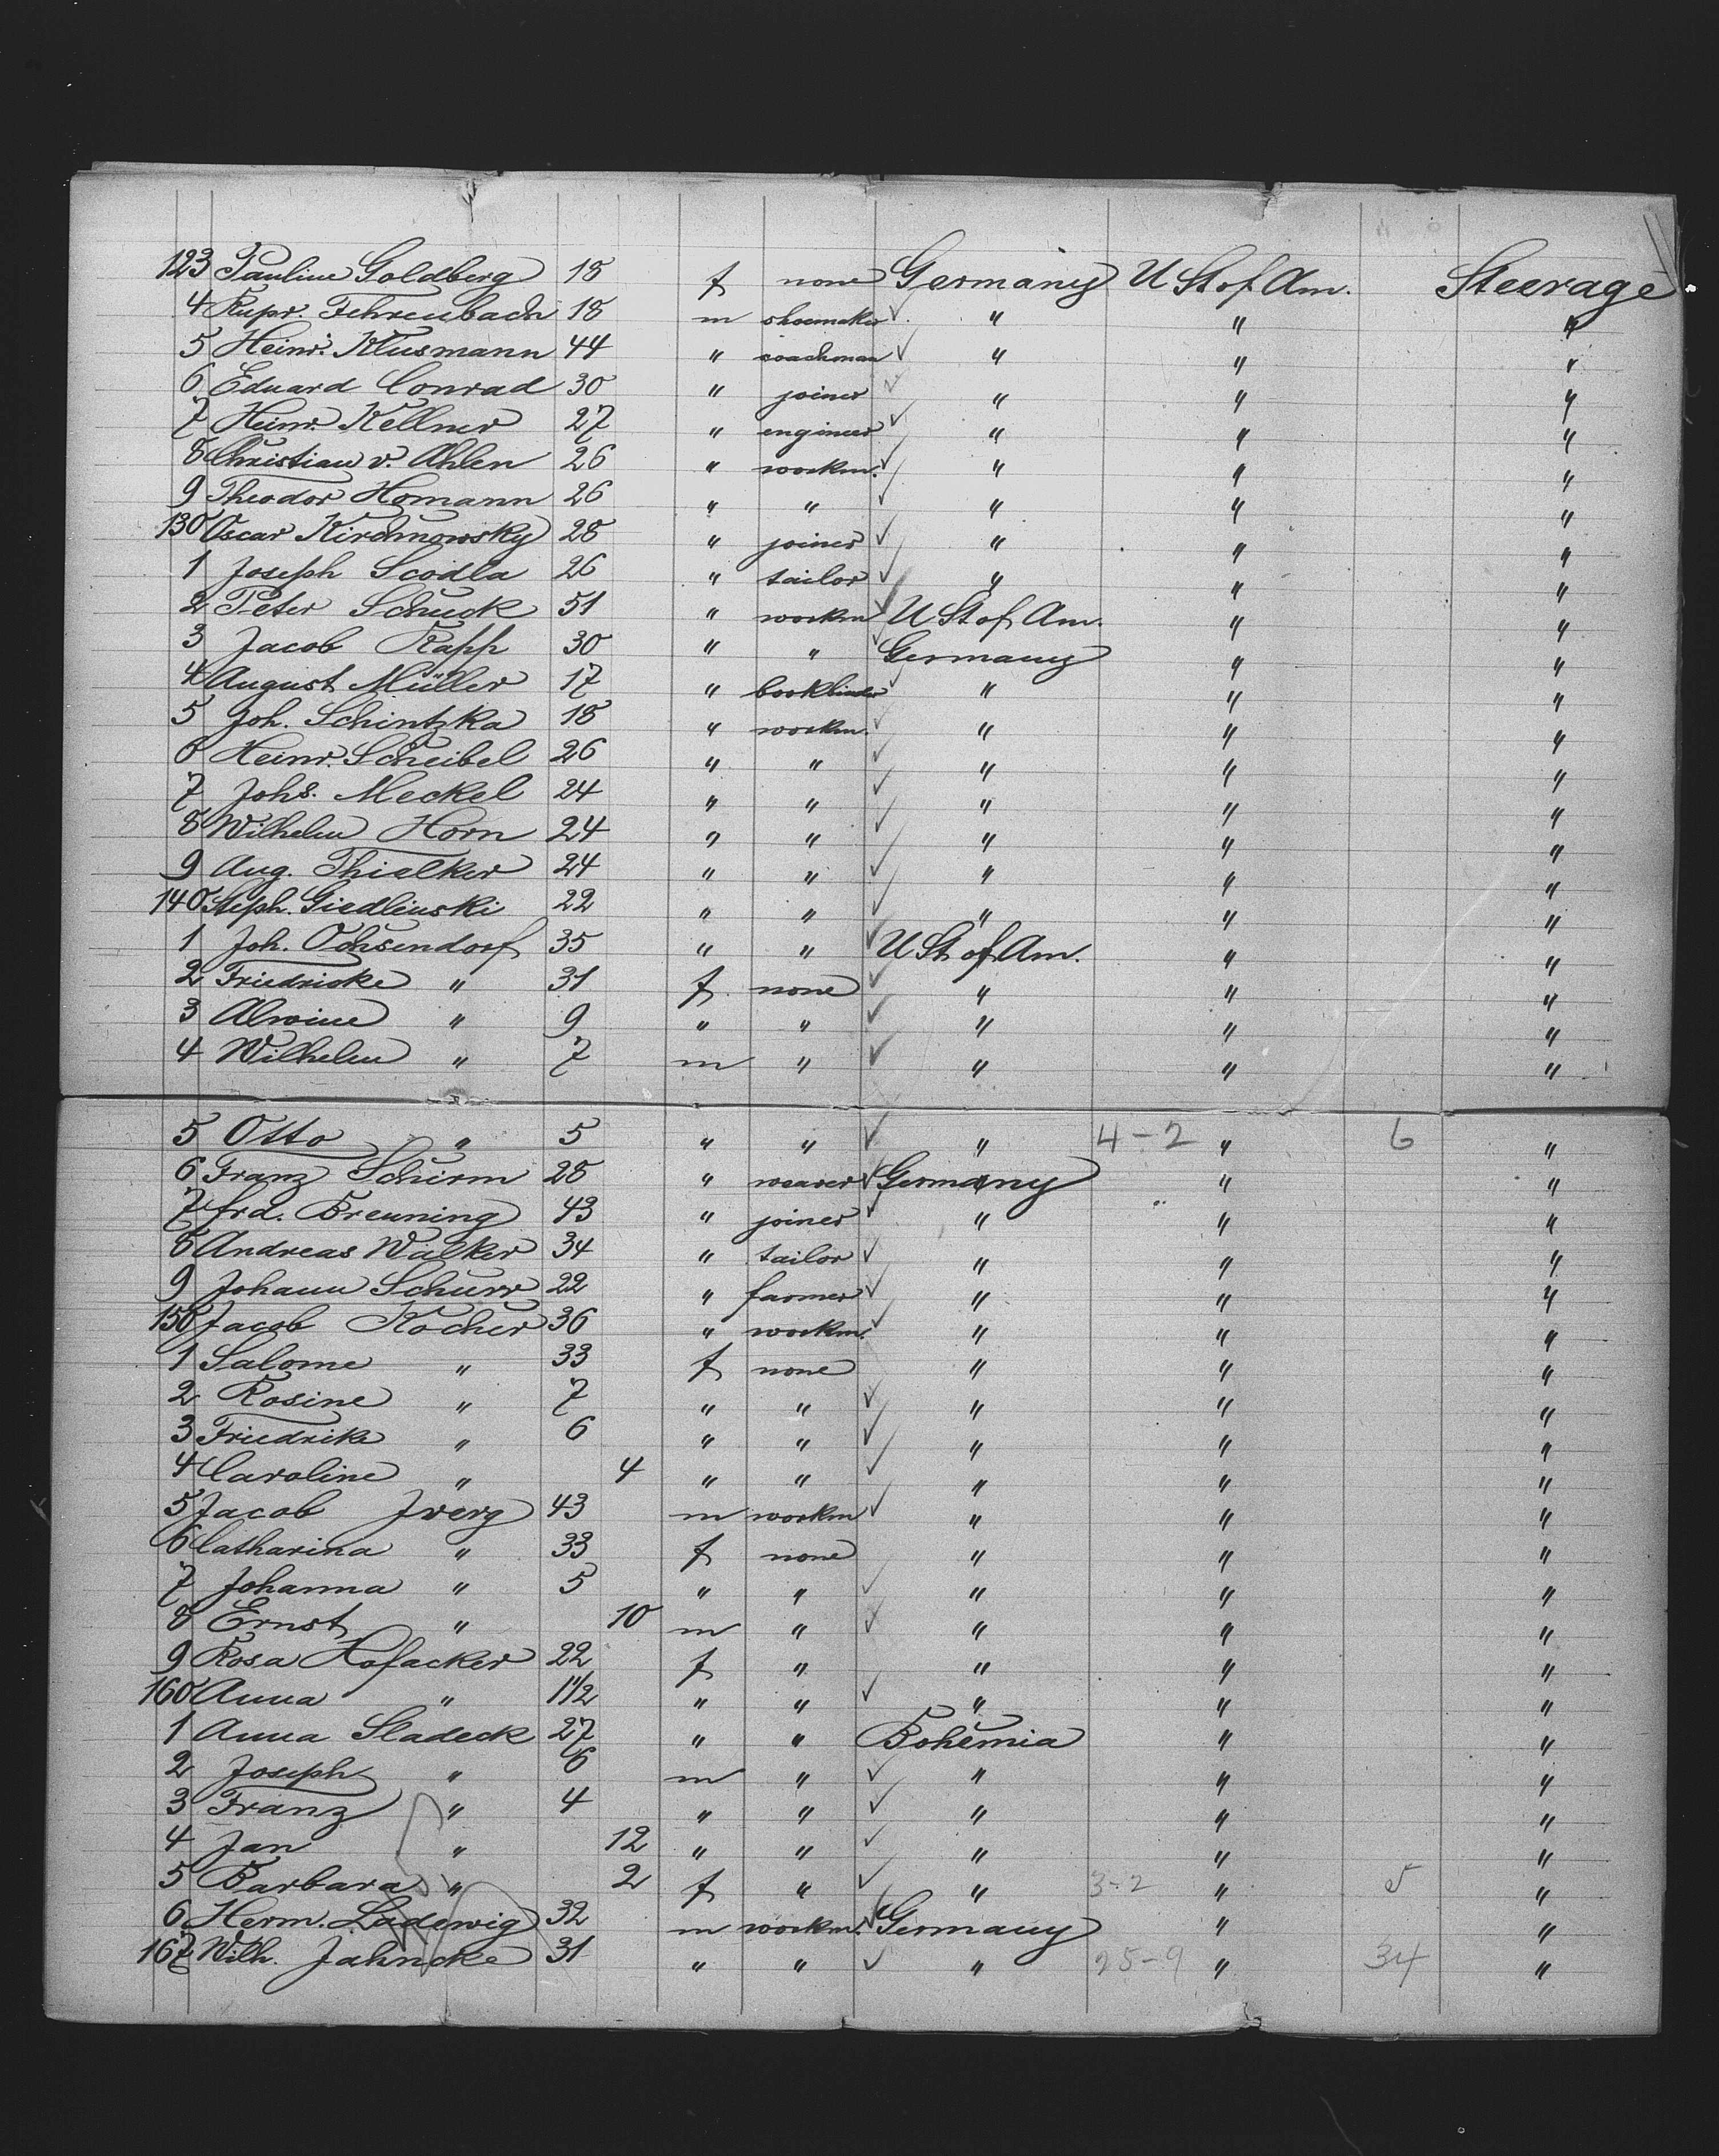 123 Pauline Goldberg 18 f none Germany U St of Am. Steerage
4 Rupr. Fehrenbach 18 m shoemaker " " "
5 Heinr. Klusmann 44 " coachman " " "
6 Eduard Conrad 30 " joiner " " "
7 Heinr. Kellner 27 " engineer " " "
8 Christian v. Ahlen 26 " workm. " " "
9 Theodor Homann 26 " " " " "
130 Oscar Kirchnowsky 28 " joiner " " "
1 Joseph Scodla 26 " tailor " " "
2 Peter Schuck 51 " workm U St of Am. " "
3 Jacob Rapp 30 " " Germany " "
4 August Müller 17 " bookbinder " " "
5 Joh. Schintzka 18 " workm. " " "
6 Heinr. Scheibel 26 " " " " "
7 Johs. Meckel 24 " " " " "
8 Wilhelm Horn 24 " " " " "
9 Aug. Thielker 24 " " " " "
140 Steph. Giedlinski 22 " " " " "
1 Joh. Ochsendorf 35 " " U St of Am. " "
2 Friedricke " 31 f none " " "
3 Alwine " 9 " " " " "
4 Wilhelm " 7 m " " " "
5 Otto " 5 " " " 4-2 " 6 "
6 Franz Schirm 28 " weaver Germany " "
7 frd. Breuning 43 " joiner " " "
8 Andreas Walker 34 " tailor " " "
9 Johann Schurr 22 " farmer " " "
150 Jacob Kocher 36 " workm. " " "
1 Salome " 33 f none " " "
2 Rosine " 7 " " " " "
3 Friedrike " 6 " " " " "
4 Caroline " 4 " " " " "
5 Jacob Zwerg 43 m workm " " "
6 Catharina " 33 f none " " "
7 Johanna " 5 " " " " "
8 Ernst " 10 m " " " "
9 Rosa Hofacker 22 f " " " "
160 Anna " 1 1/2 " " " " "
1 Anna Sladeck 27 " " Bohemia " "
2 Joseph " 6 m " " " "
3 Franz " 4 " " " " "
4 Jan " 12 " " " " "
5 Barbara " 2 f " " 3-2 " 5 "
6 Herm. Ladewig 32 m workm. Germany " "
167 Wilh. Jahncke 31 " " " 25-9 " 34 "